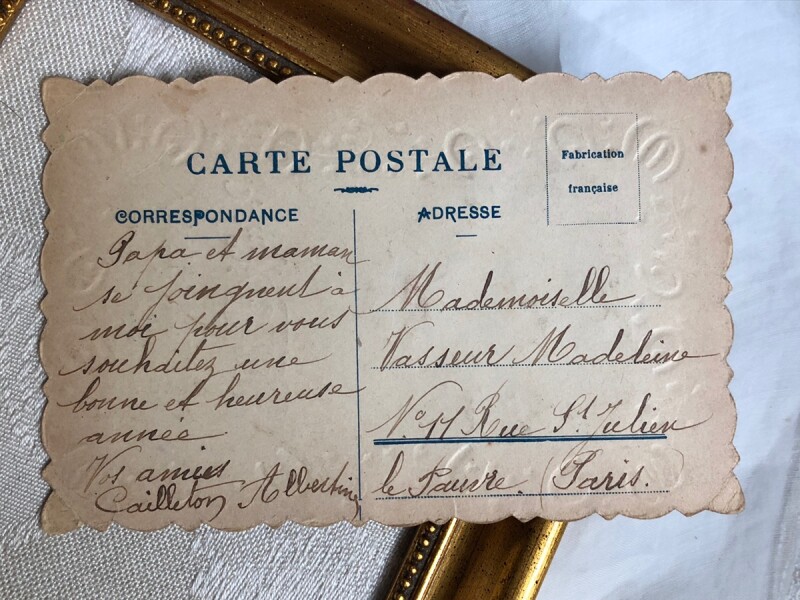 CARTE POSTALE
Fabrication
française
CORRESPONDANCE
Papa et maman
se joingnent à
moi pour vous
souhaitez une
bonne et heureuse
année
Vos amies
Cailleton Albertine
ADRESSE
Mademoiselle
Vasseur Madeleine
N° 11 Rue St Julien
le Pauvre. (Paris.